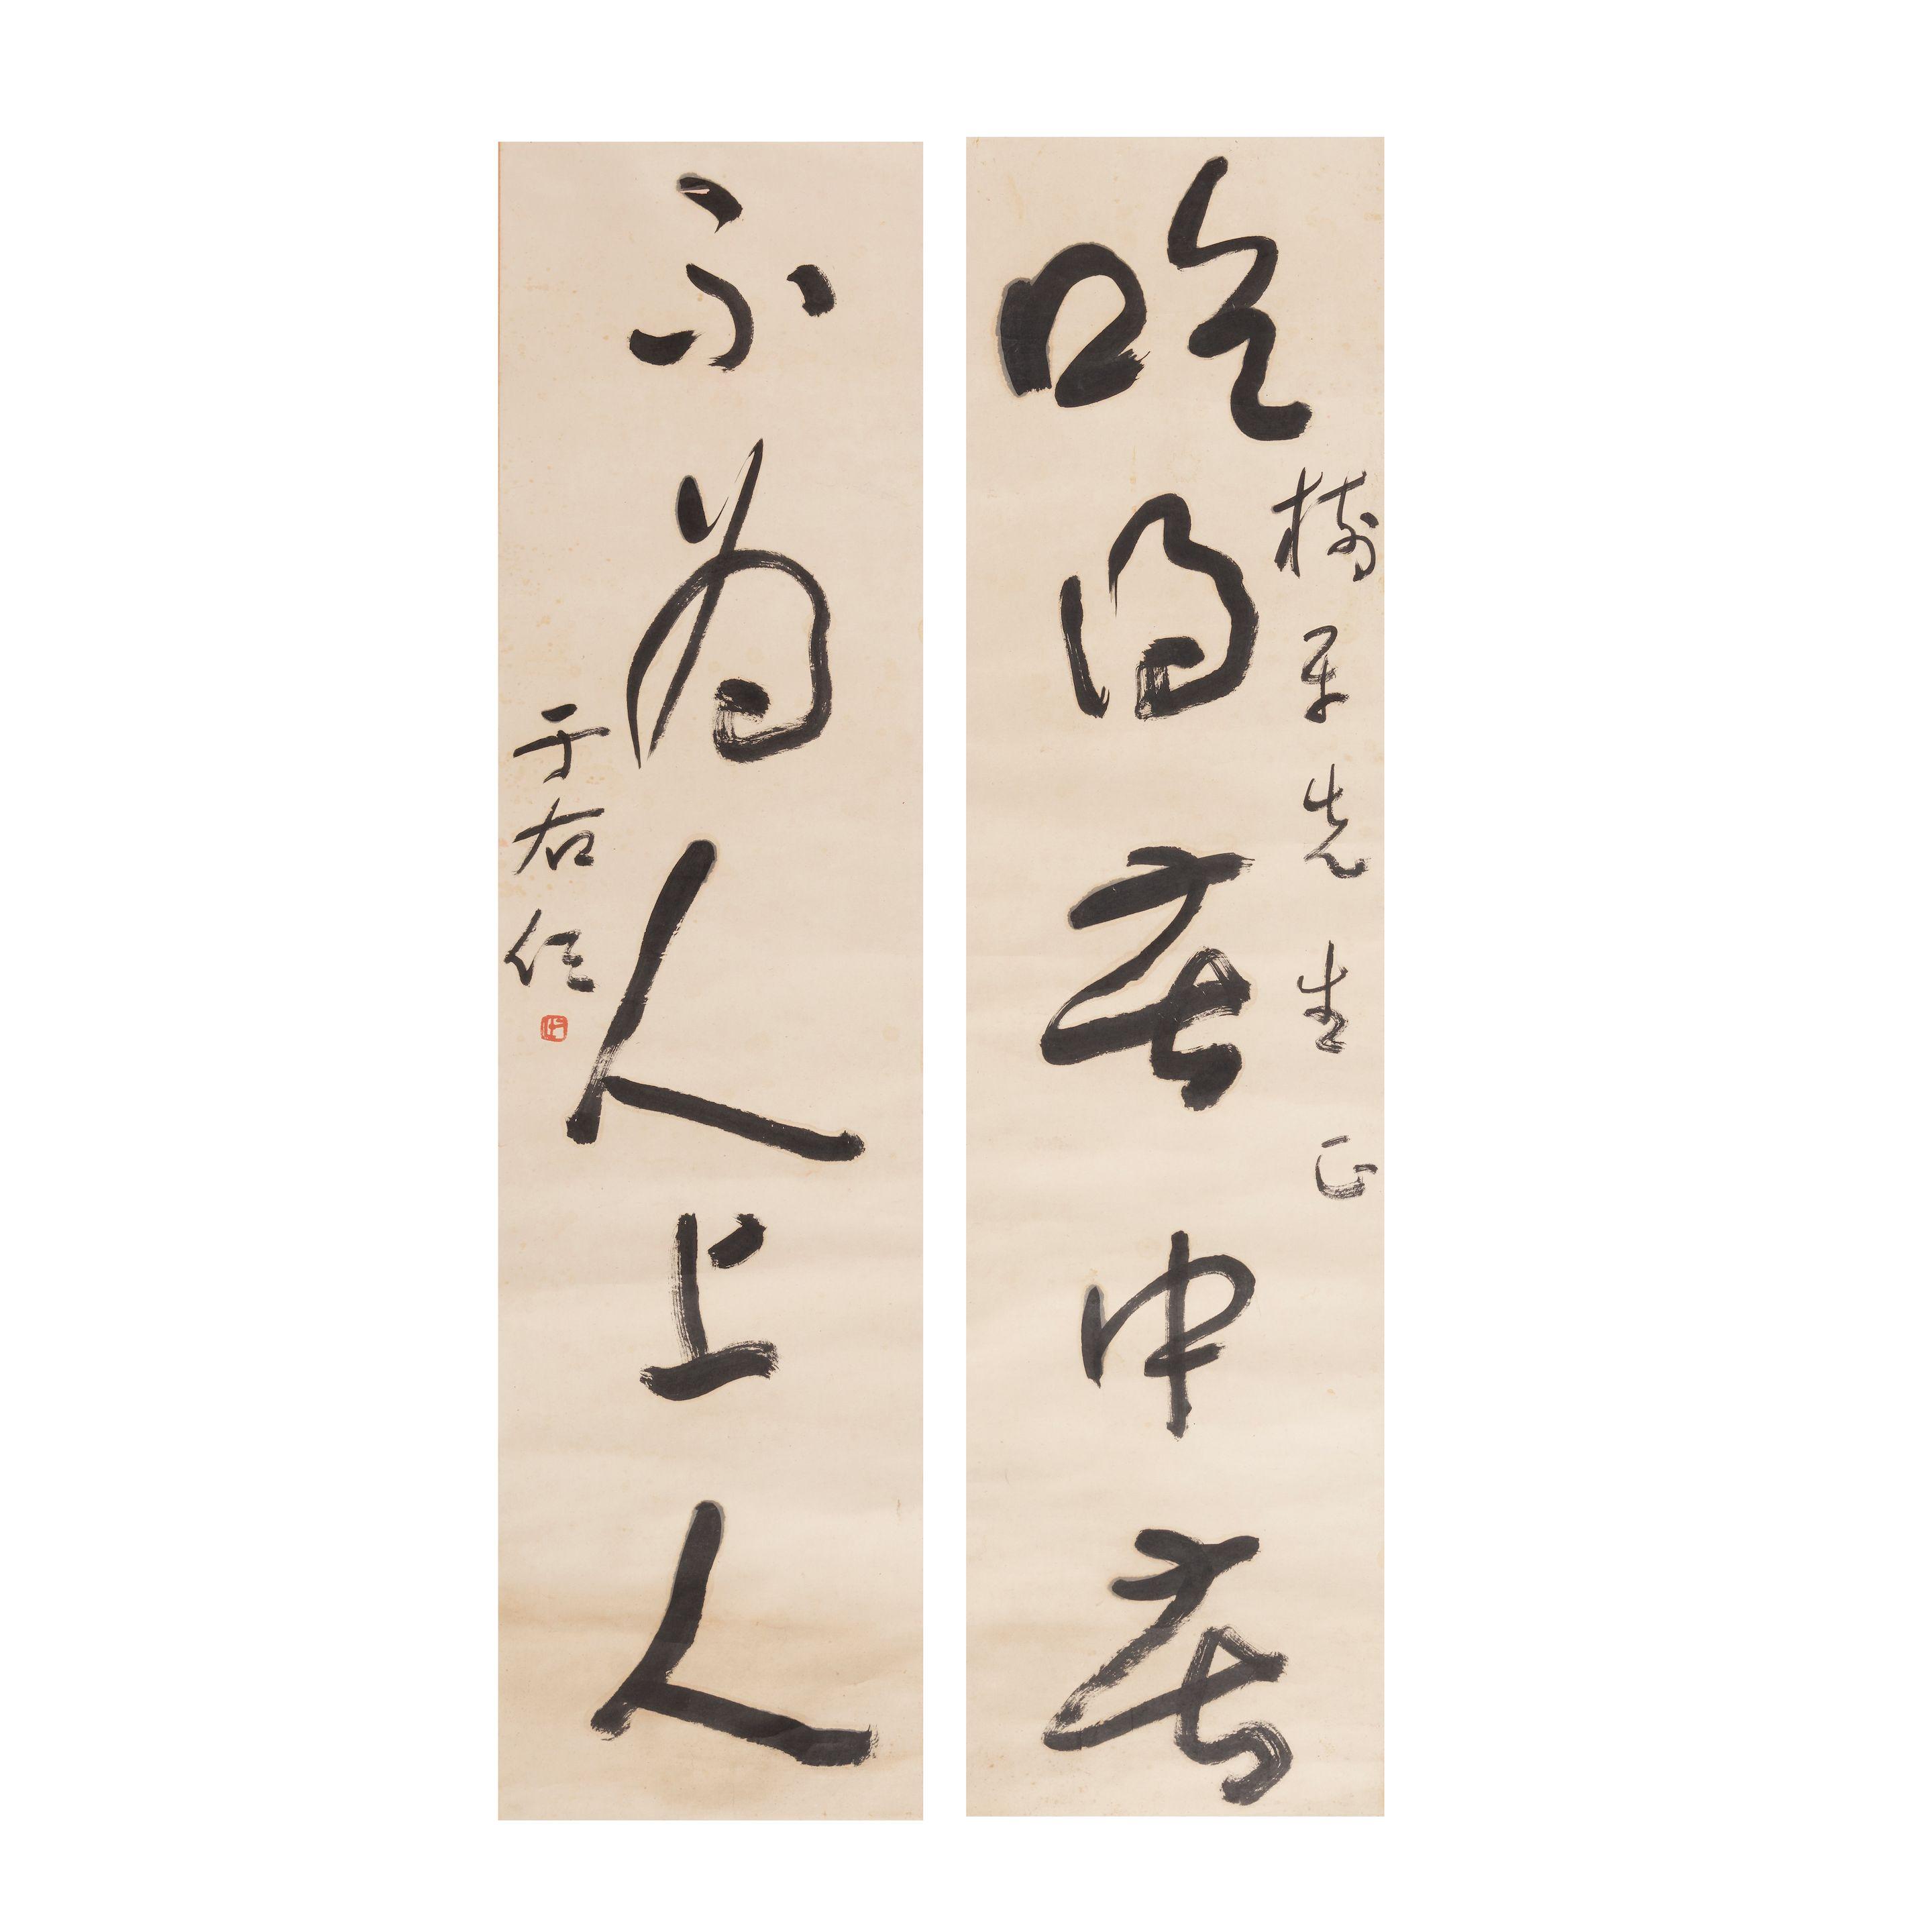 吃得苦中苦
樹平先生正
不為人上人
于右任